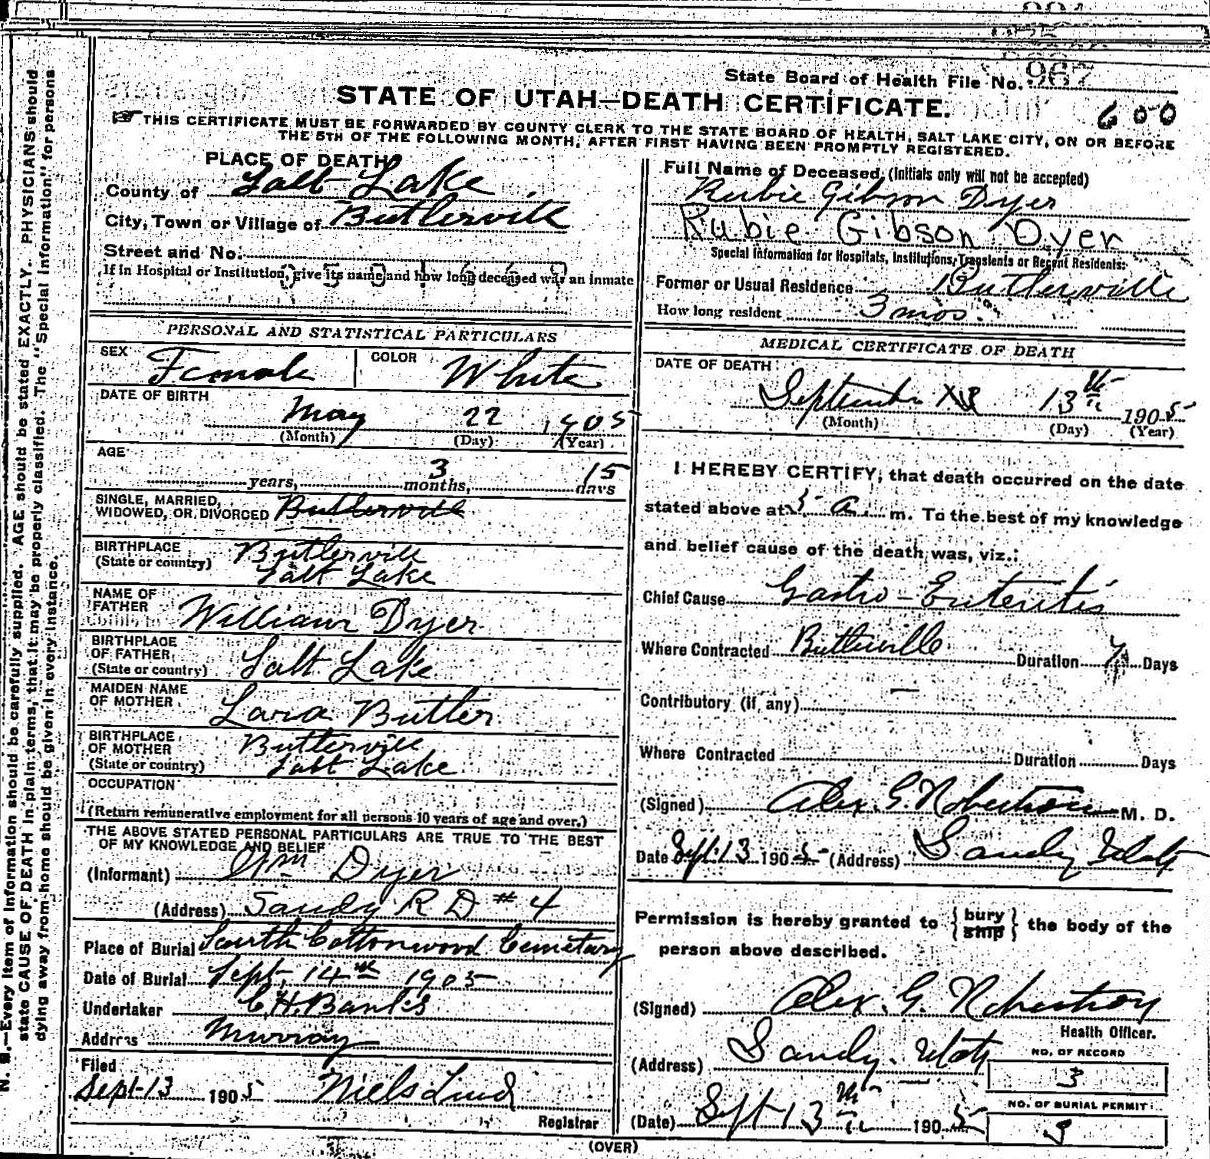 State Board of Health File No. 967
STATE OF UTAH—DEATH CERTIFICATE.
600
THIS CERTIFICATE MUST BE FORWARDED BY COUNTY CLERK TO THE STATE BOARD OF HEALTH, SALT LAKE CITY, ON OR BEFORE
THE 5TH OF THE FOLLOWING MONTH, AFTER FIRST HAVING BEEN PROMPTLY REGISTERED.
PLACE OF DEATH
County of Salt Lake
City, Town or Village of Butlervill
Street and No.
If in Hospital or Institution, give its name and how long deceased was an inmate
PERSONAL AND STATISTICAL PARTICULARS
SEX Female COLOR White
DATE OF BIRTH
May 22 1905
(Month) (Day) (Year)
AGE
years, 3 months, 15 days
SINGLE, MARRIED,
WIDOWED, OR DIVORCED Butlervill
BIRTHPLACE Butlervill
(State or country) Salt Lake
NAME OF
FATHER William Dyer
BIRTHPLACE
OF FATHER
(State or country) Salt Lake
MAIDEN NAME
OF MOTHER Lara Butler
BIRTHPLACE Butlervill
OF MOTHER
(State or country) Salt Lake
OCCUPATION
(Return remunerative employment for all persons 10 years of age and over.)
THE ABOVE STATED PERSONAL PARTICULARS ARE TRUE TO THE BEST
OF MY KNOWLEDGE AND BELIEF
(Informant) Wm Dyer
(Address) Sandy R D # 4
Place of Burial South Cottonwood Cemetary
Date of Burial Sept. 14th 1905
Undertaker C.H. Banks
Address Murray
Filed
Sept-13 1905 Niels Lind
Registrar
Full Name of Deceased, (Initials only will not be accepted)
Rubie Gibson Dyer
Rubie Gibson Dyer
Special Information for Hospitals, Institutions, Transients or Recent Residents:
Former or Usual Residence Butlerville
How long resident 3 mos.
MEDICAL CERTIFICATE OF DEATH
DATE OF DEATH
September 13th 1905
(Month) (Day) (Year)
I HEREBY CERTIFY, that death occurred on the date
stated above at 5 a. m. To the best of my knowledge
and belief cause of the death was, viz.:
Chief Cause Gastro-Enteritis
Where Contracted Butlerville Duration 7 Days
Contributory (if any) —
Where Contracted Duration Days
(Signed) Alex. G. Robertson M. D.
Date Sept. 13 1905 (Address) Sandy Utah
Permission is hereby granted to { bury ship } the body of the
person above described.
(Signed) Alex. G. Robertson
Health Officer.
(Address) Sandy. Utah
NO. OF RECORD
3
(Date) Sept 13th 1905
NO. OF BURIAL PERMIT
3
(OVER)
N. B.—Every item of information should be carefully supplied. AGE should be stated EXACTLY. PHYSICIANS should
state CAUSE OF DEATH in plain terms, that it may be properly classified. The "Special Information" for persons
dying away from home should be given in every instance.